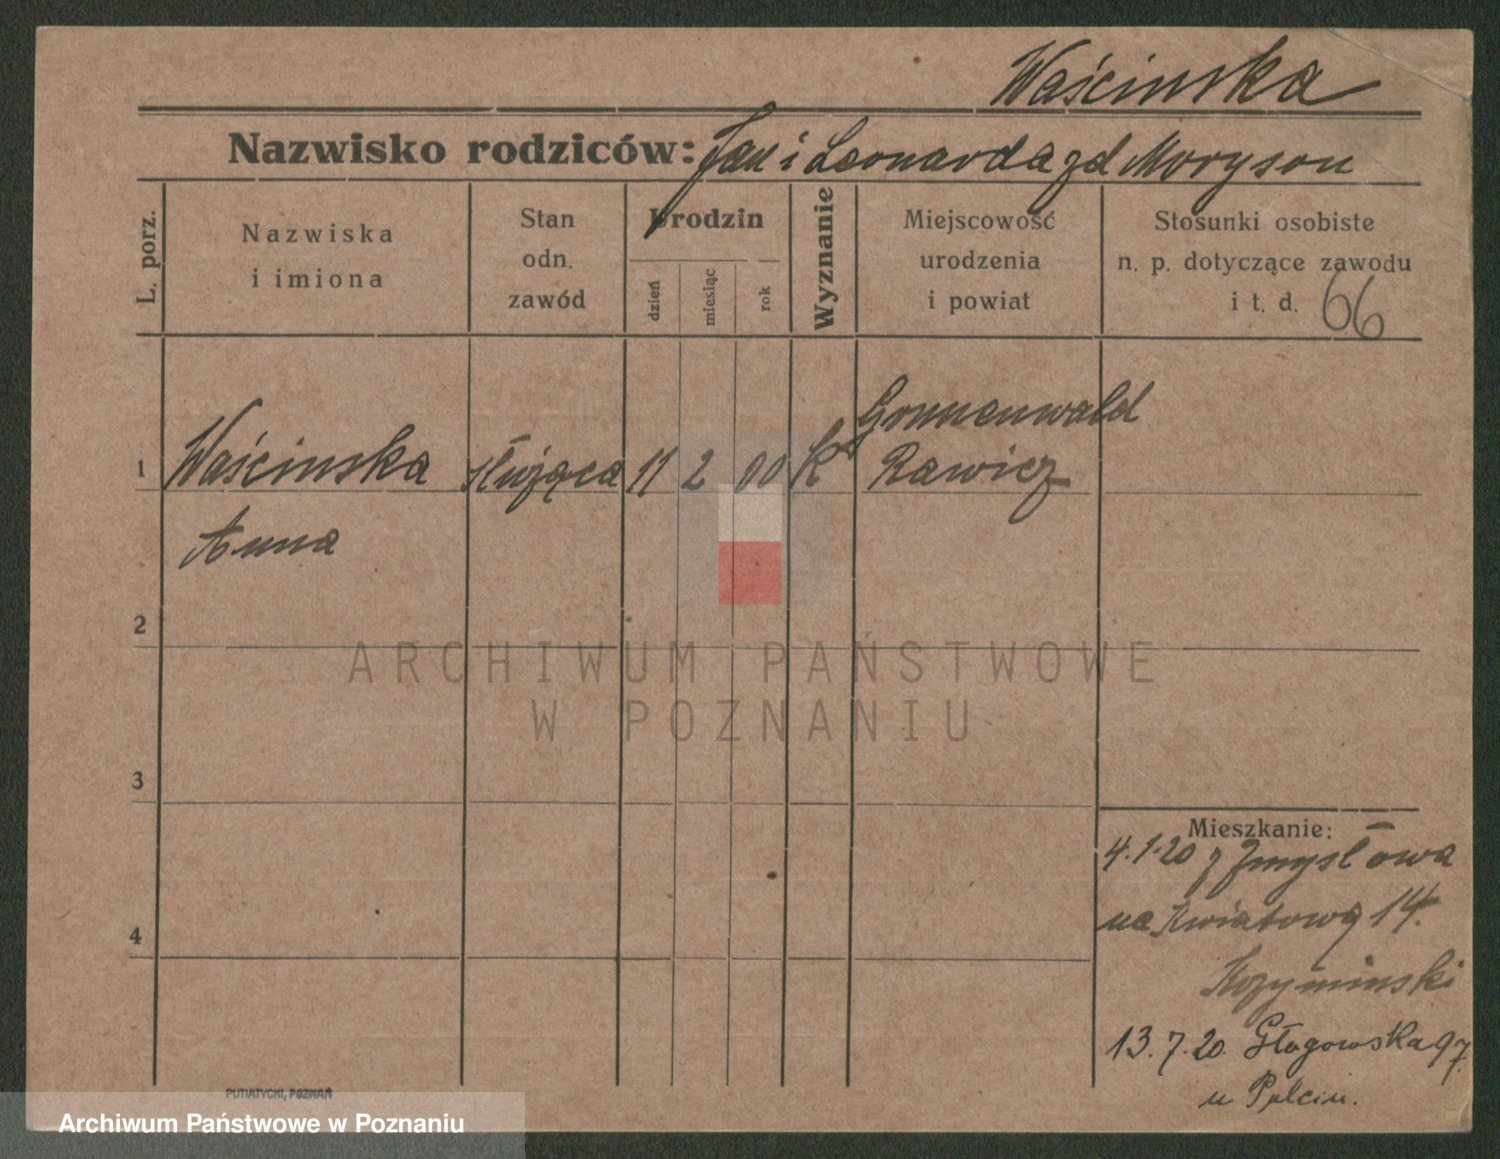 Waścinska
Nazwisko rodziców: Jan i Leonarda zd Moryson
L. porz.
Nazwiska
i imiona
Stan
odn.
zawód
Urodzin
dzień
miesiąc
rok
Wyznanie
Miejscowość
urodzenia
i powiat
Stosunki osobiste
n. p. dotyczące zawodu
i t. d. 66
Gronnenwald
1 Waścinska służąca 11 2 00 K Rawicz
Anna
2
ARCHIWUM PAŃSTWOWE
W POZNANIU
3
Mieszkanie:
4.1.20 z Zmysłowa
na Kwiatową 14.
4
Kozyminski
13.7.20. Głogowska 97
u
PUTIATYCKI, POZNAŃ
Archiwum Państwowe w Poznaniu